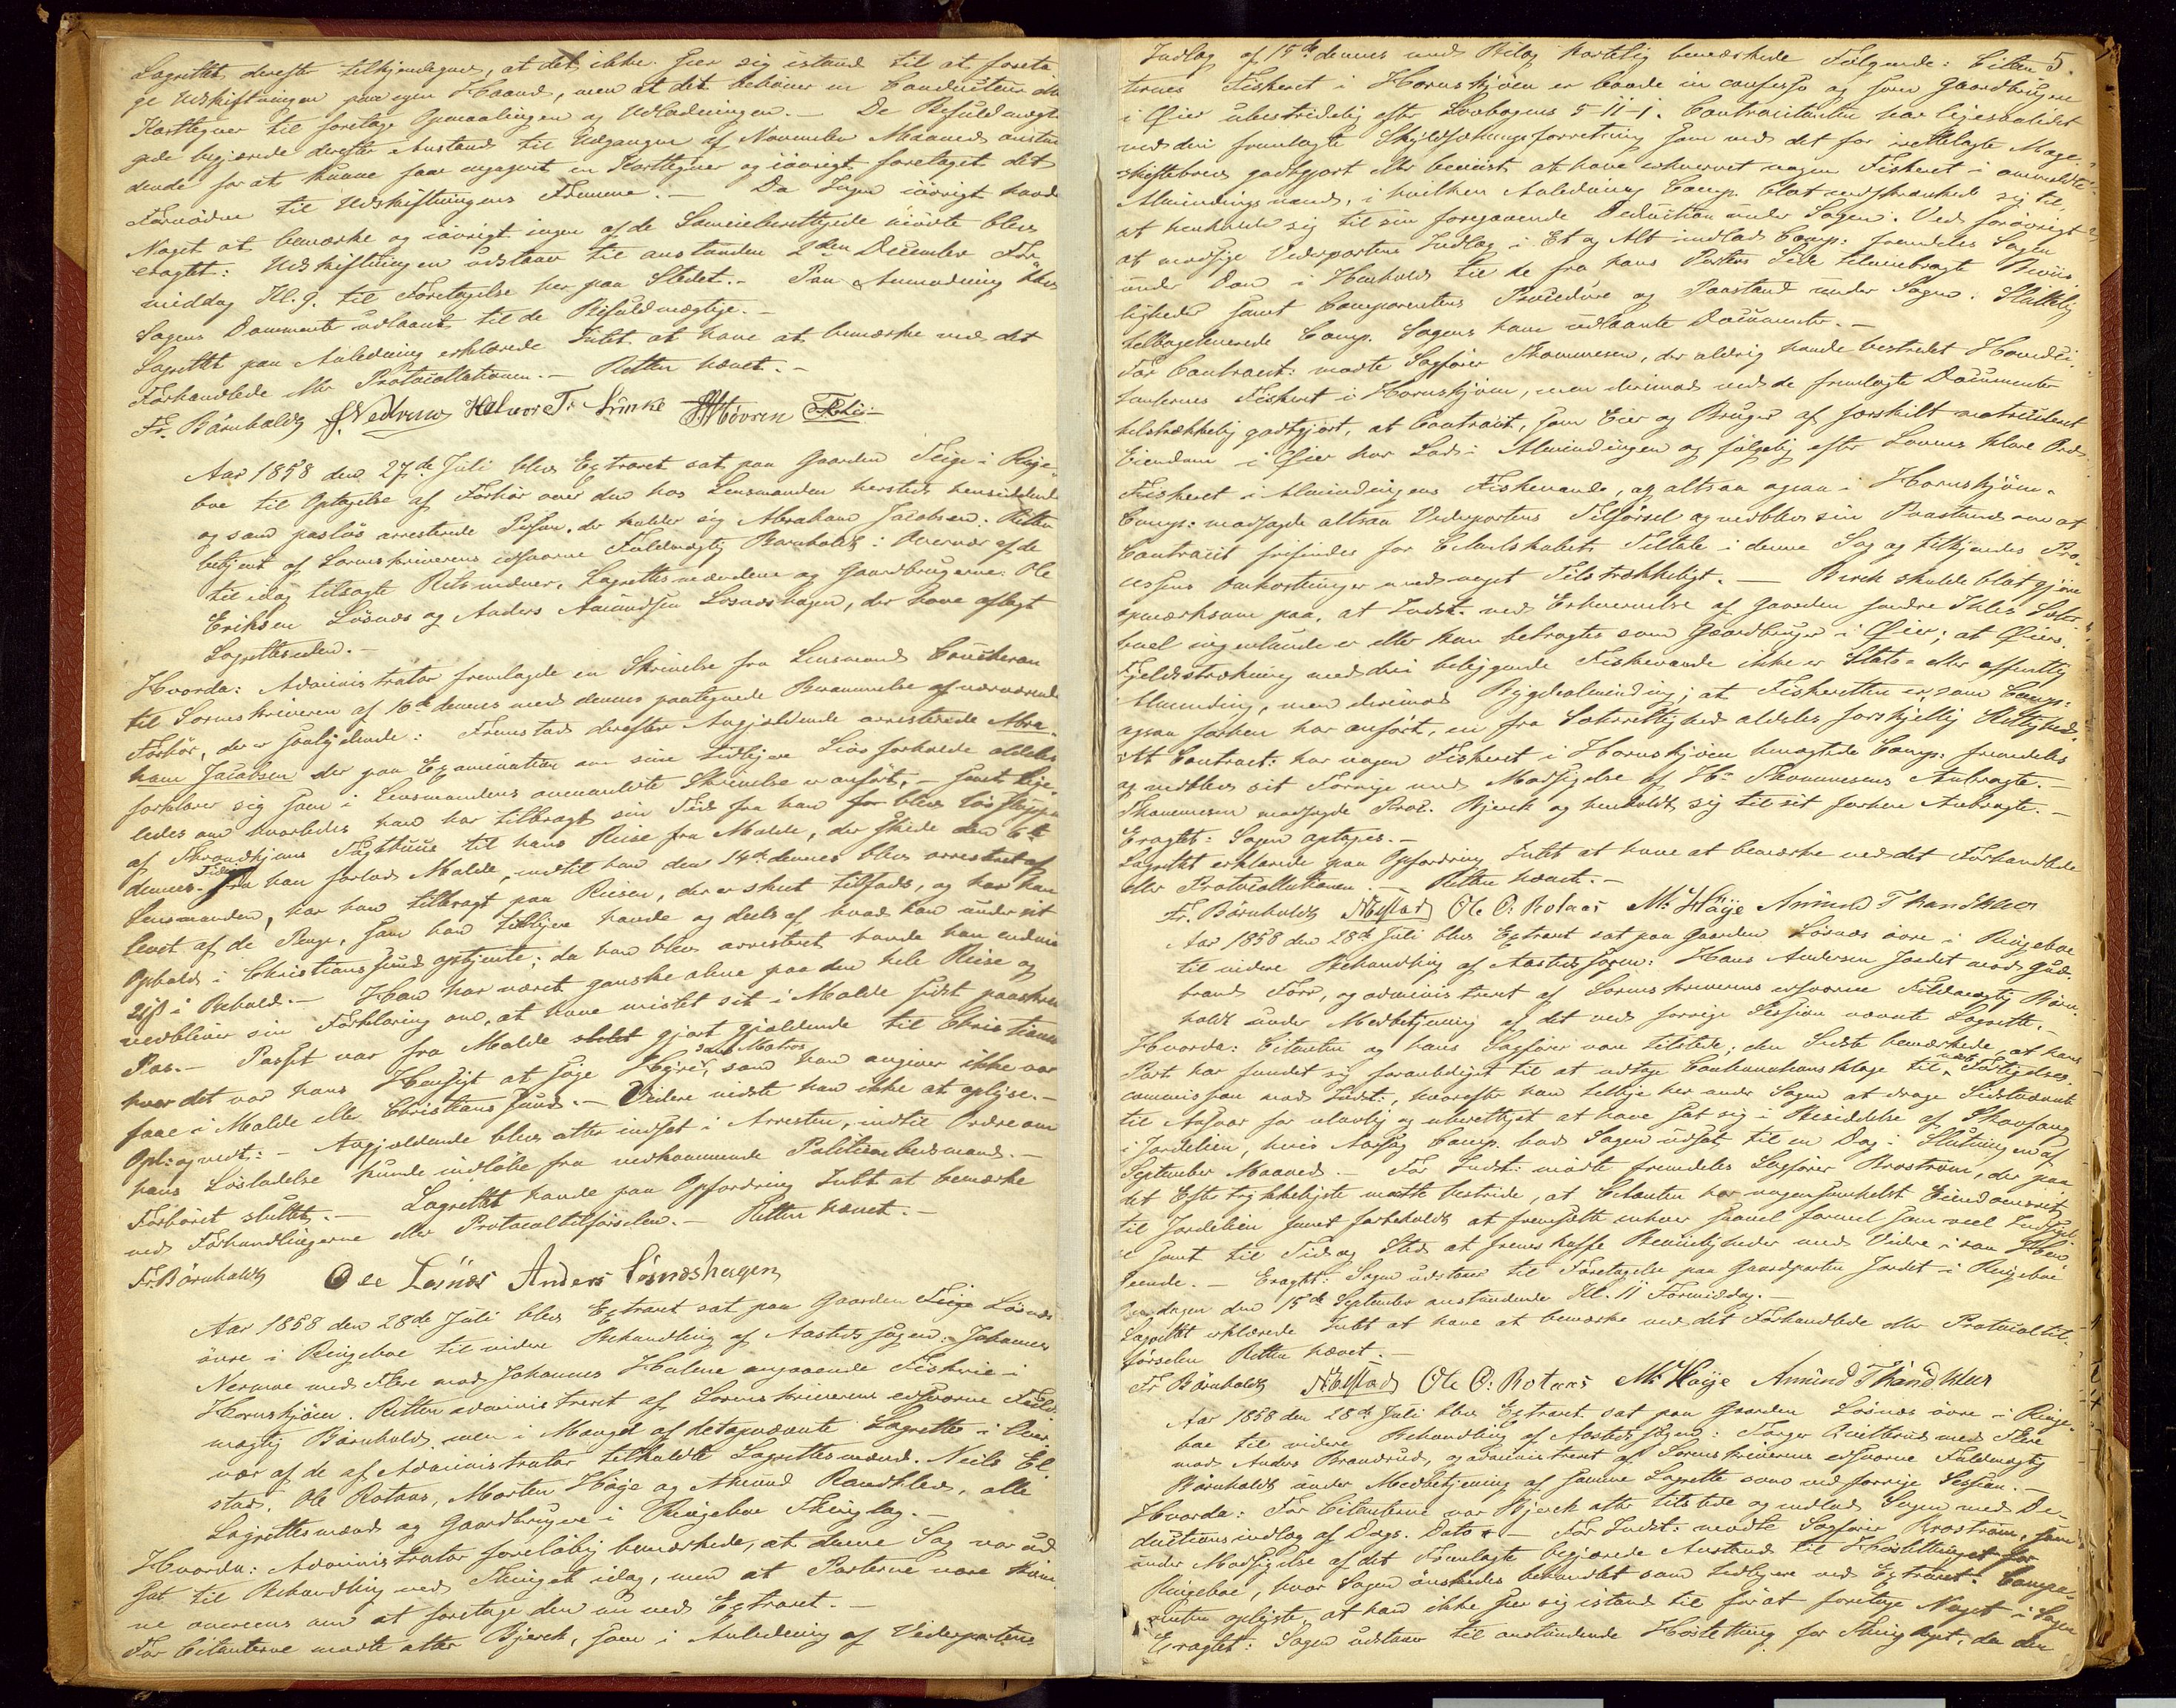 Lagrettet derefter tilkjendegav, at det ikke seer sig istand til at foreta
ge Udskiftningen paa egen Haand, men at det behøver en Conducteur eller
Karttegner til foretage Opmaalingen og Udlodningen. – De Befuldmægti
gede begjærede derefter Anstand til Udgangen af November Maaned anstun
dende for at kunne faae engageret en Karttegner og iøvrigt foretaget det
Fornødne til Udskiftningens Fremme. – Da Ingen iøvrigt havde
Noget at bemærke og iøvrigt ingen af de Sameieberettigede mødte blev
eragtet: Udskiftningen udstaaer til anstundende 2den December For
middag Kl. 9. til Foretagelse her paa Stedet. – Paa Anmodning blev
Sagens Documenter udlaant til de Befuldmægtige. –
Lagrettet paa Anledning erklærede Intet at have at bemærke ved det
Forhandlede eller Protocollationen. – Retten hævet. –
Fr. Bärnholdt Halvor T.
Aar 1858 den 27de Juli blev Extraret sat paa Gaarden Teige i Ringe-
boe til Optagelse af Forhør over den hos Lensmanden hersteds hensiddende
og som pasløs arresterede Person, der kalder sig Abraham Jacobsen: Retten
betjent af Sorenskriverens edsvorne Fuldmægtig Bärnholdt i Overvær af de
til idag tilsagte Retsvidner, Lagrettesmændene og Gaardbrugerne: Ole
Eriksen Løsnæs og Anders Amundsen Løsnæshagen, der have aflagt
Lagrettesеden. –
Hvorda: Administrator fremlagde en Skrivelse fra Lensmand
til Sorenskriveren af 16de dennes med dennes paategnede Berammelse af nærværende
Forhør, der er saalydende: Fremstod derefter Angjældende arresterede Abra-
ham Jacobsen der paa Examination om sine tidligere Livsforholde aldeles
forklarer sig som i Lensmandens ommeldte Skrivelse er anført, – samt lige-
ledes om hvorledes han har tilbragt sin Tid fra han blev løs sluppen
af Throndhjems Tugthuus til hans Reise fra Molde, der skede den 6te
dennes. Tiden fra han forlod Molde, indtil han den 14de dennes blev arresteret af
Lensmanden, har han tilbragt paa Reisen, der er skeet tilfods, og har han
levet af de Penge, som han tidligere havde og deels af hvad han under sit
Ophold i Christianssund optjente; da han blev arresteret havde han endnu
i Behold. – Han har været ganske alene paa den hele Reise og
vedbliver sin Forklaring om, at have mistet sit i Molde sidst paaskrevne
Pas. – Passet var fra Molde gjort gjældende til Christiania
hvor det var hans Hensigt at søge Hyre som Matros, som han angiver ikke var at
faae i Molde eller Christianssund. – Videre vidste han ikke at oplyse. –
Opl: og vedt: – Angjældende blev atter indsat i Arresten, indtil Ordre om
hans Løsladelse kunde indløbe fra vedkommende Politiembedsmand. –
Forhøret sluttet. – Lagrettet havde paa Opfordring Intet at bemærke
ved Forhandlingerne eller Protocoltilførselen. – Retten hævet. –
Fr. Bärnholdt Ole Løsnæs Anders Løsnæshagen
Aar 1858 den 28de Juli blev Extraret sat paa Gaarden Løsnæs
øvre i Ringeboe til videre Behandling af Aastedssagen: Johannes
Nermoe med Flere mod Johannes Hulene angaaende Fiskerie i
Hornskjøen. Retten administreret af Sorenskriverens edsvorne Fuld-
mægtig Bärnholdt, men i Mangel af det opnævnte Lagrette i Over-
vær af de af Administrator tilkaldte Lagrettesmænd. Neils El-
stad, Ole Rotaas, Morten Høye og Amund Randklev, alle
Lagrettesmænd og Gaardbrugere i Ringeboe Thinglag. –
Hvorda: Administrator foreløbig bemærkede, at denne Sag var ud
sat til Behandling ved Thinget idag, men at Parterne vare kom-
ne overeens om at foretage den nu ved Extraret. –
For Citanterne mødte atter Bjerck, som i Anledning af Vederpartens
5.
Indlæg af 15de dennes med Bilag kortelig bemærkede Følgende: Citan-
ternes Fiskeret i Hornskjøen er baade in confesso og som Gaardbrugere
i Øier ubestridelig efter Lovbogens 5-11-1. Contracitanten har ligesaalidet
ved den fremlagte Skyldsætningsforretning som ved det før irettelagte Mage-
skiftebrev godtgjort eller beviist at have erhvervet nogen Fiskeret i ommeldte
Almindings vand, i hvilken Anledning Comp. blot indskrænkede sig til
at henholde sig til sin foregaaende Deduction under Sagen. Ved forøvrigt
at modsige Vederpartens Indlæg i Et og Alt indlod Comp: fremdeles Sagen
under Dom i Henhold til de fra hans Parters Side tilveiebragte Beviis
ligheder samt Comparentens Procedure og Paastand under Sagen. Sluttelig
tilbageleverede Comp. Sagens ham udlaante Documenter. –
For Contracit: mødte Sagfører Thommesen, der aldrig havde bestredet Hovedci-
tanternes Fiskeret i Hornskjøen, men derimod ved de fremlagte Documenter
tilstrækkelig godtgjort, at Contracit, som Eier og Bruger af særskilt matriculeret
Eiendom i Øier har Lod i Almindingen og følgelig efter Lovens klare Ord
Fiskeret i Almindingens Fiskevande, og altsaa ogsaa i Hornskjøen.
Comp: modsagde altsaa Vederpartens Tilførsel og nedlagde sin Paastand om at
Contracit frifindes for Citantskabets Tiltale i denne Sag og tilkjendes Pro-
cessens Omkostninger med noget Tilstrækkeligt. – Bjerck skulde blot gjøre
opmærksom paa, at Indst: ved Erhvervelse af Gaarden søndre Sæter-
boel ingenlunde er eller kan betragtes som Gaardbruger i Øier; at Øiers
Fjeldstrækning med deri beliggende Fiskevande ikke er Stats- eller offentlig
Alminding, men derimod Bygdealminding; at Fiskeretten er, som Comp:
ogsaa forhen har anført, en fra Sæterrettighed aldeles forskjellig Rettighed.
At Contracit: har nogen Fiskeret i Hornskjøen benægtede Comp: fremdeles
og vedblev sit Forrige med Modsigelse af Hr Thommesens Anbragte. –
Thommesen modsagde Proc. Bjerck og henholdt sig til sit forhen Anbragte. –
Eragtet: Sagen optages. –
Lagrettet erklærede paa Opfordring Intet at have at bemærke ved det Forhandlede
eller Protocollationen. – Retten hævet. –
Fr. Bärnholdt NElstad Ole O: Rotaas M: Höÿe Amund Randklev
Aar 1858 den 28de Juli blev Extraret sat paa Gaarden Løsnæs øvre i Ringeboe
til videre Behandling af Aastedssagen: Hans Andersen Jordet mod Gud-
brand Forr, og administreret af Sorenskriverens edsvorne Fuldmægtig Bärn-
holdt under Medbetjening af det ved forrige Session nævnte Lagrette. –
Hvorda: Citanten og hans Sagfører vare tilstede; den Sidste bemærkede, at hans
Part har fundet sig foranlediget til at udtage Continuationsklage til Forligelses-
commission mod Indst:, hvorefter han tillige her under Sagen at drage Sidstnævnte
til Ansvar for ulovlig og uberettiget at have sat sig i Besiddelse af
i Jordelien, hvis Aarsag Comp. bad Sagen udsat til en Dag i Slutningen af
September Maaned. – For Indst: mødte fremdeles Sagfører Brostrøm, der paa
det Eftertrykkeligste maatte bestride, at Citanten har nogensomhelst Eiendomsret
til Jordelien samt forbeholdt at fremsætte enhver saavel formel som reel Indsigel-
se samt til Tid og Sted at fremskaffe Beviisligheder med Videre i saa Hen-
seende. – Eragtet: Sagen udstaaer til Foretagelse paa Gaardparten Jordet i Ringeboe
Onsdagen den 15de September anstundende Kl. 11 Formiddag. –
Lagrettet erklærede Intet at have at bemærke ved det Forhandlede eller Protocoltil-
førselen. Retten hævet. –
Fr Bärnholdt NElstad Ole O: Rotaas M: Höÿe Amund Randklev
Aar 1858 den 28de Juli blev Extraret sat paa Gaarden Løsnæs øvre i Ringe-
boe til videre Behandling af Aastedssagen: Torger med Flere
mod Anders Brandrud, og administreret af Sorenskriverens edsvorne Fuldmægtig
Bärnholdt under Medbetjening af samme Lagrette som ved forrige Session. –
Hvorda: For Citanterne var Bjerck atter tilstede og indlod Sagen med De-
ductionsindlæg af Dags Dato – For Indst: mødte Sagfører Brostrøm, som
under Modsigelse af det Fremlagte begjærede Anstand til Høsttthinget for
Ringeboe, hvor Sagen ønskedes behandlet som tidligere ved Extraret. Compa-
renten oplyste, at han ikke seer sig istand til før at foretage Noget i Sagen
Eragtet: Sagen udstaaer til anstundende Høstething for Thinglaget, da den